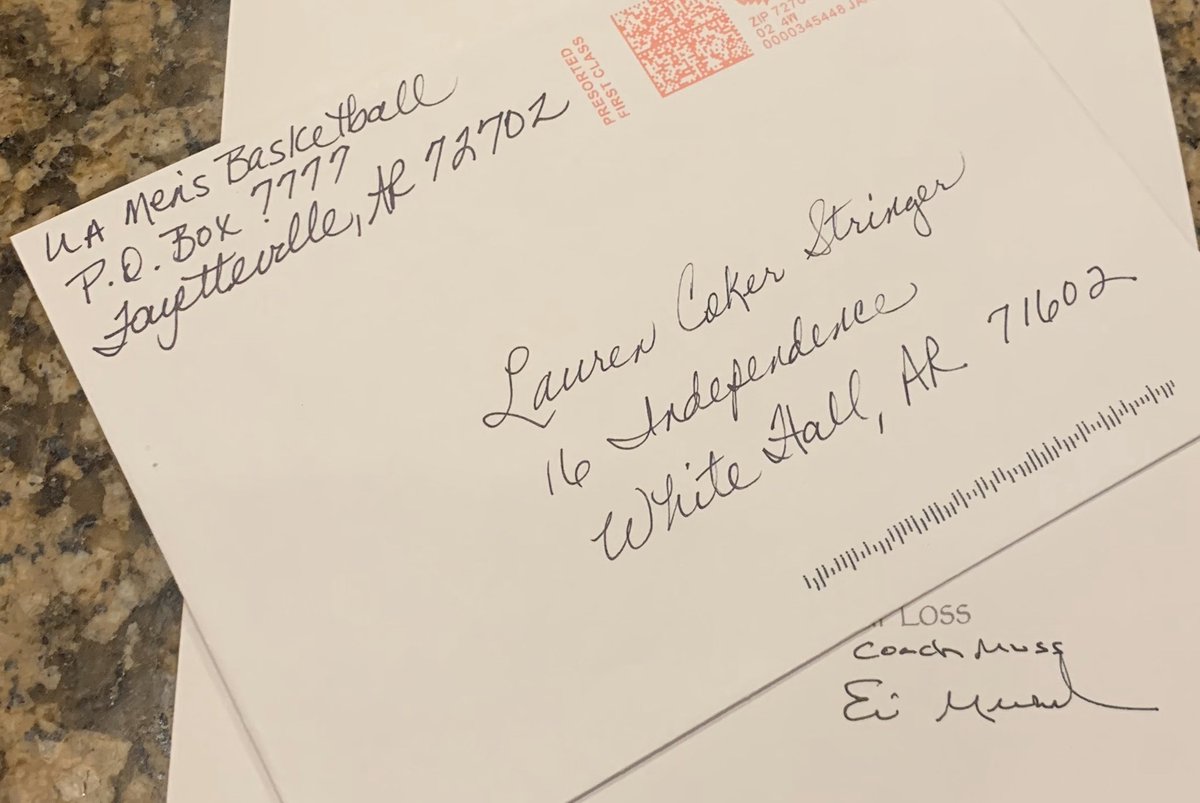 UA Men's Basketball
P.O. Box 7777
Fayetteville, AR 72702
PRESORTED
FIRST CLASS
02 4W
0000345448
Lauren Coker Stringer
16 Independence
White Hall, AR 71602
Loss
Coach Muss